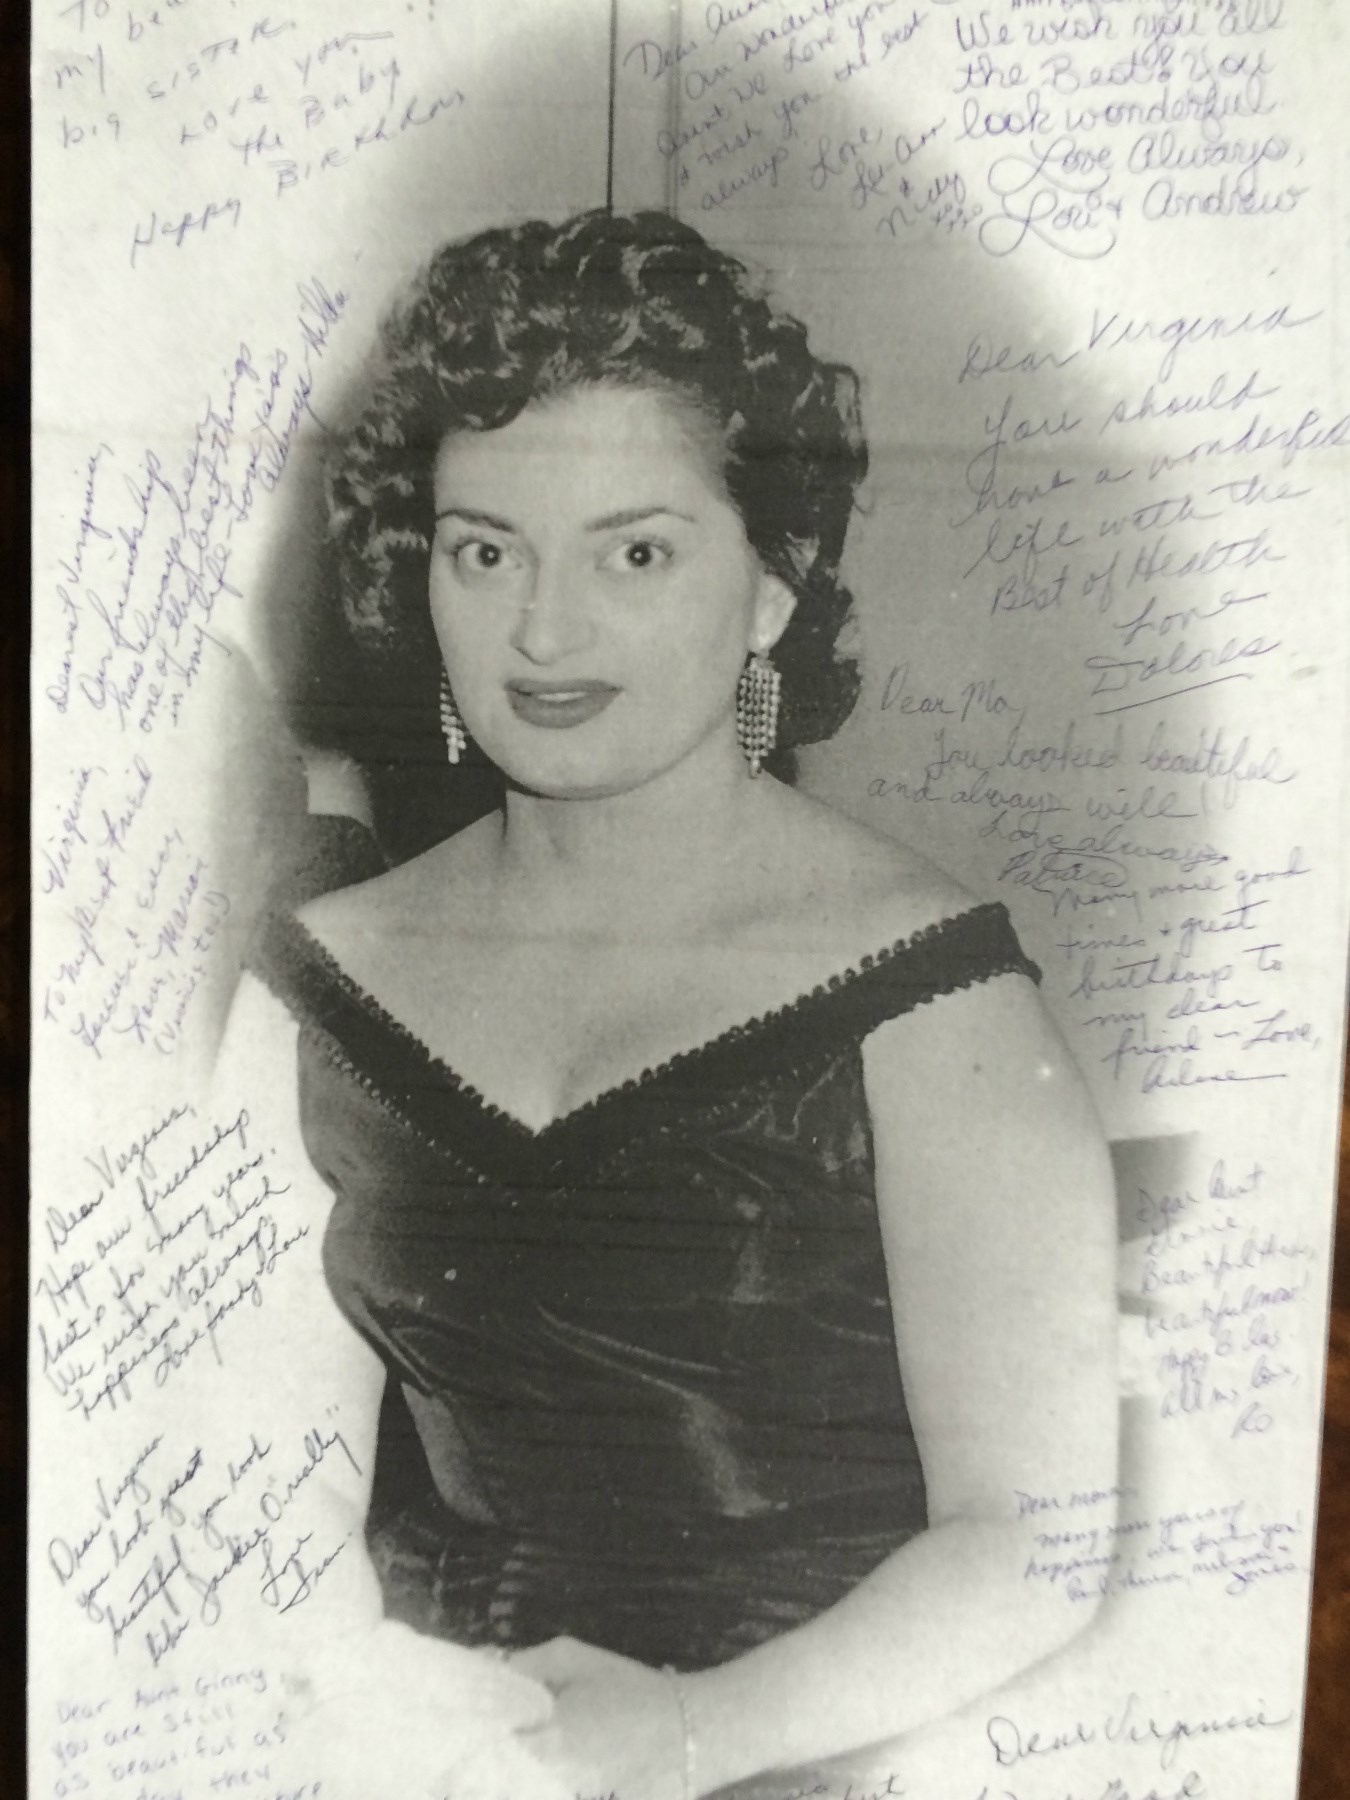 To
my
big sister.
Love you,
The Baby
Happy Birthday,
Dear
An wonderful
Aunt we Love you
& wish you the best
always Love,
Lee-Ann
&
We wish you all
the Best! You
look wonderful
Love Always,
Lori & Andrew
Dearest Virginia,
Our friendship
has always been
one of the best things
in my life - Love ya's
Always Hilda
Dear Virginia
You should
have a wonderful
life with the
Best of Health
Love
Dolores
Dear Ma,
You looked beautiful
and always will!
Love always
Patrice
Many more good
times & great
birthdays to
my dear
friend - Love,
Arlene
Virginia,
To my best friend
forever & ever,
Love, Marie
(Vinnie too)
Dear Virginia,
Hope our friendship
lasts for many years.
We wish you much
happiness always.
Love
Dear Aunt
Beautiful then,
beautiful now!
Happy B day
all my love,
Ro
Dear Virginia
you look great
beautiful. you look
like Jackie "O" really"
Love
Dear Mom
many more years of
happiness, we love you!
Dear Aunt Ginny,
you are still
as beautiful as
day they
picture
Dear Virginia
Good
but